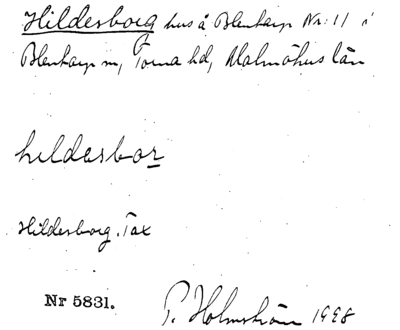 Hilderborg hus å Blentarp Nr: 11 i
Blentarp sn, Torna hd, Malmöhus län
hıldasbor
Hilderborg. Tax
Nr 5831.
P. Holmström 1998